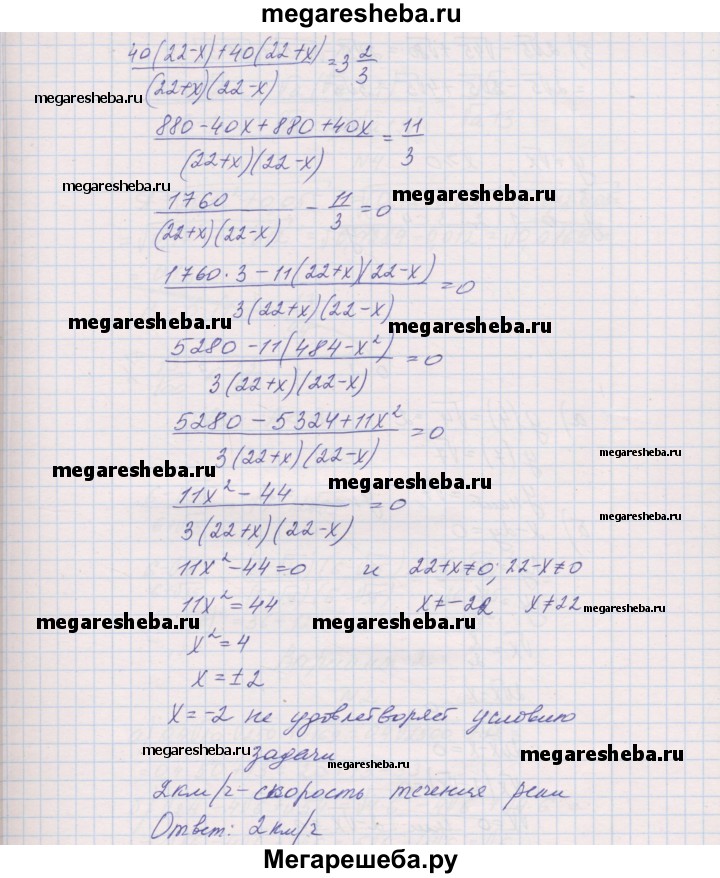 megaresheba.ru
40(22-x)+40(22+x) / (22+x)(22-x) = 3 2/3
megaresheba.ru
880-40x+880+40x / (22+x)(22-x) = 11/3
megaresheba.ru
megaresheba.ru
1760 / (22+x)(22-x) - 11/3 = 0
1760·3-11(22+x)(22-x) / 3(22+x)(22-x) = 0
megaresheba.ru
megaresheba.ru
5280-11(484-x²) / 3(22+x)(22-x) = 0
5280-5324+11x² / 3(22+x)(22-x) = 0
megaresheba.ru
megaresheba.ru
megaresheba.ru
11x²-44 / 3(22+x)(22-x) = 0
megaresheba.ru
11x²-44=0 и 22+x≠0; 22-x≠0
11x²=44 x≠-22 x≠22
megaresheba.ru
megaresheba.ru
megaresheba.ru
x²=4
x=±2
x=-2 не удовлетворяет условию
задачи
megaresheba.ru
megaresheba.ru
megaresheba.ru
2км/ч-скорость течения реки
Ответ: 2км/ч
Мегарешеба.ру